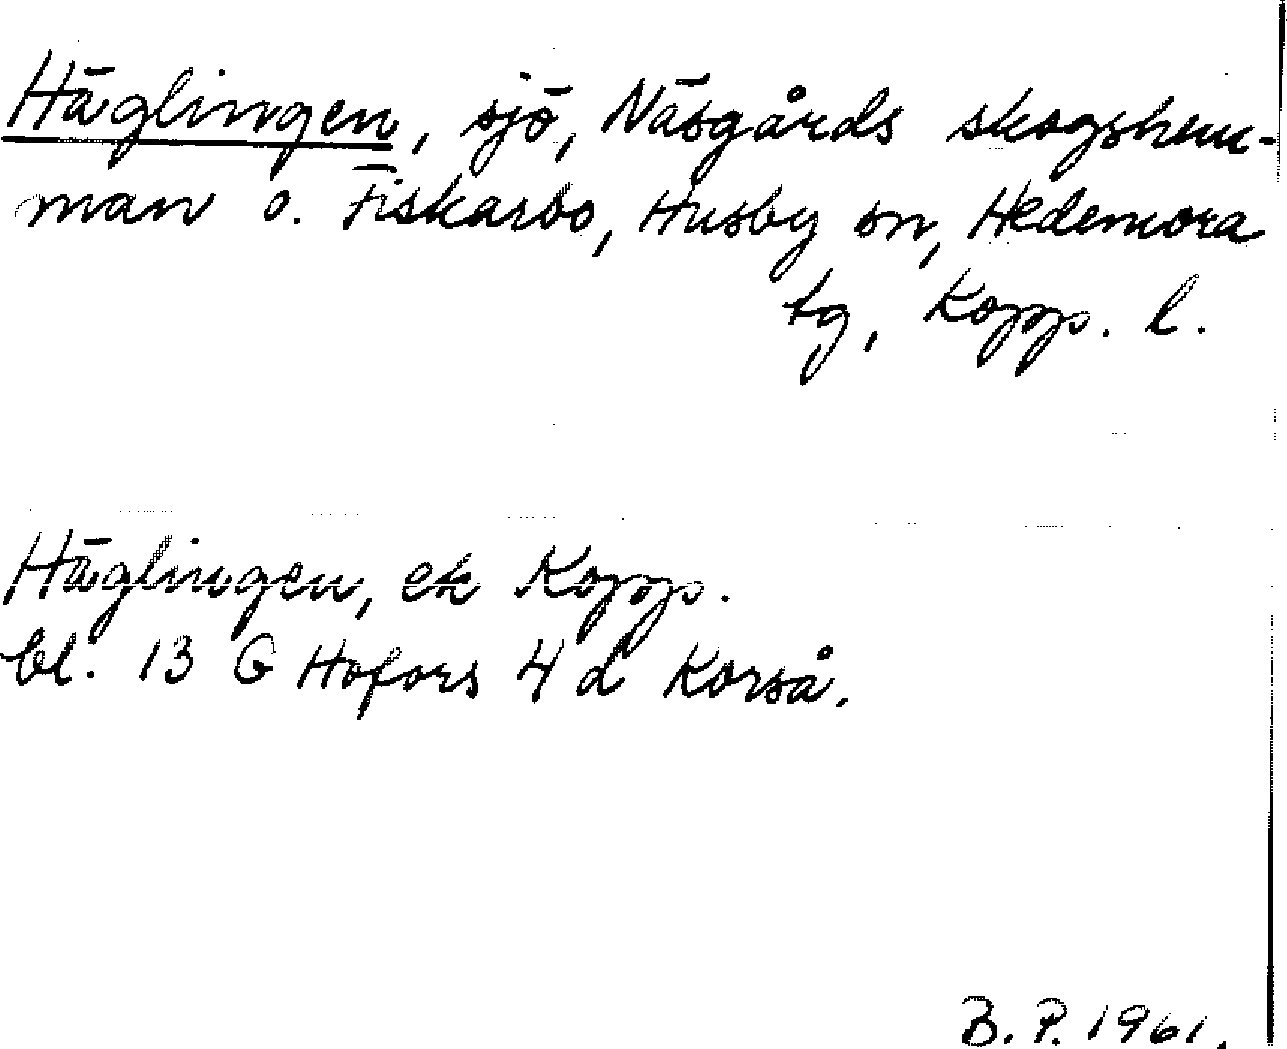 Häglingen, sjö, Näsgårds skogshem-
man o. Fiskarbo, Husby sn, Hedemora
tg, Kopp. l.
Häglingen, ek Kopp.
bl. 13 G Hofors 4 d Korså.
B. P. 1961.